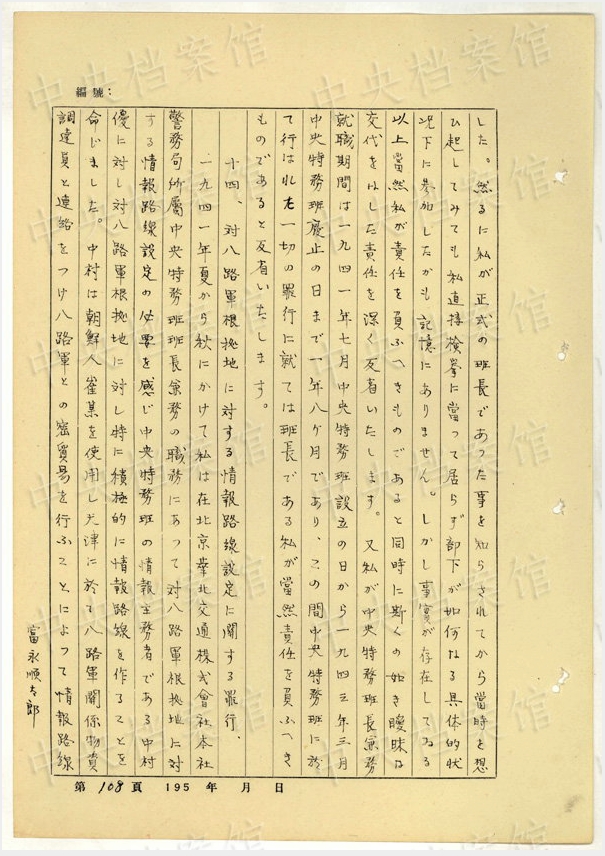 編號：
した。然るに私が正式の班長であった事を知らされてから當時を想
ひ起してみても私直接検挙に當って居らず部下が如何なる具体的状
況下に参加したかも記憶にありません。しかし事実が存在してゐる
以上當然私が責任を負ふべきものであると同時に斯くの如き曖昧な
交代を以した責任を深く反省いたします。又私が中央特務班長兼務
就職期間は一九四一年七月中央特務班設立の日から一九四三年三月
中央特務班廃止の日まで一年八ヶ月であり、この間中央特務班に於
て行はれた一切の罪行に就ては班長である私が當然責任を負ふべき
ものであると反省いたします。
十四、対八路軍根拠地に対する情報路線設定に関する罪行、
一九四一年夏から秋にかけて私は在北京華北交通株式會社本社
警務局所屬中央特務班班長兼務の職務にあって対八路軍根拠地に対
する情報路線設定の必要を感じ中央特務班の情報主務者である中村
優に対し対八路軍根拠地に対し特に積極的に情報路線を作ることを
命じました。中村は朝鮮人崔某を使用し天津に於て八路軍関係物資
調達員と連絡をつけ八路軍との密貿易を行ふことによって情報路線
富永順太郎
第108頁 195 年 月 日
中央档案馆